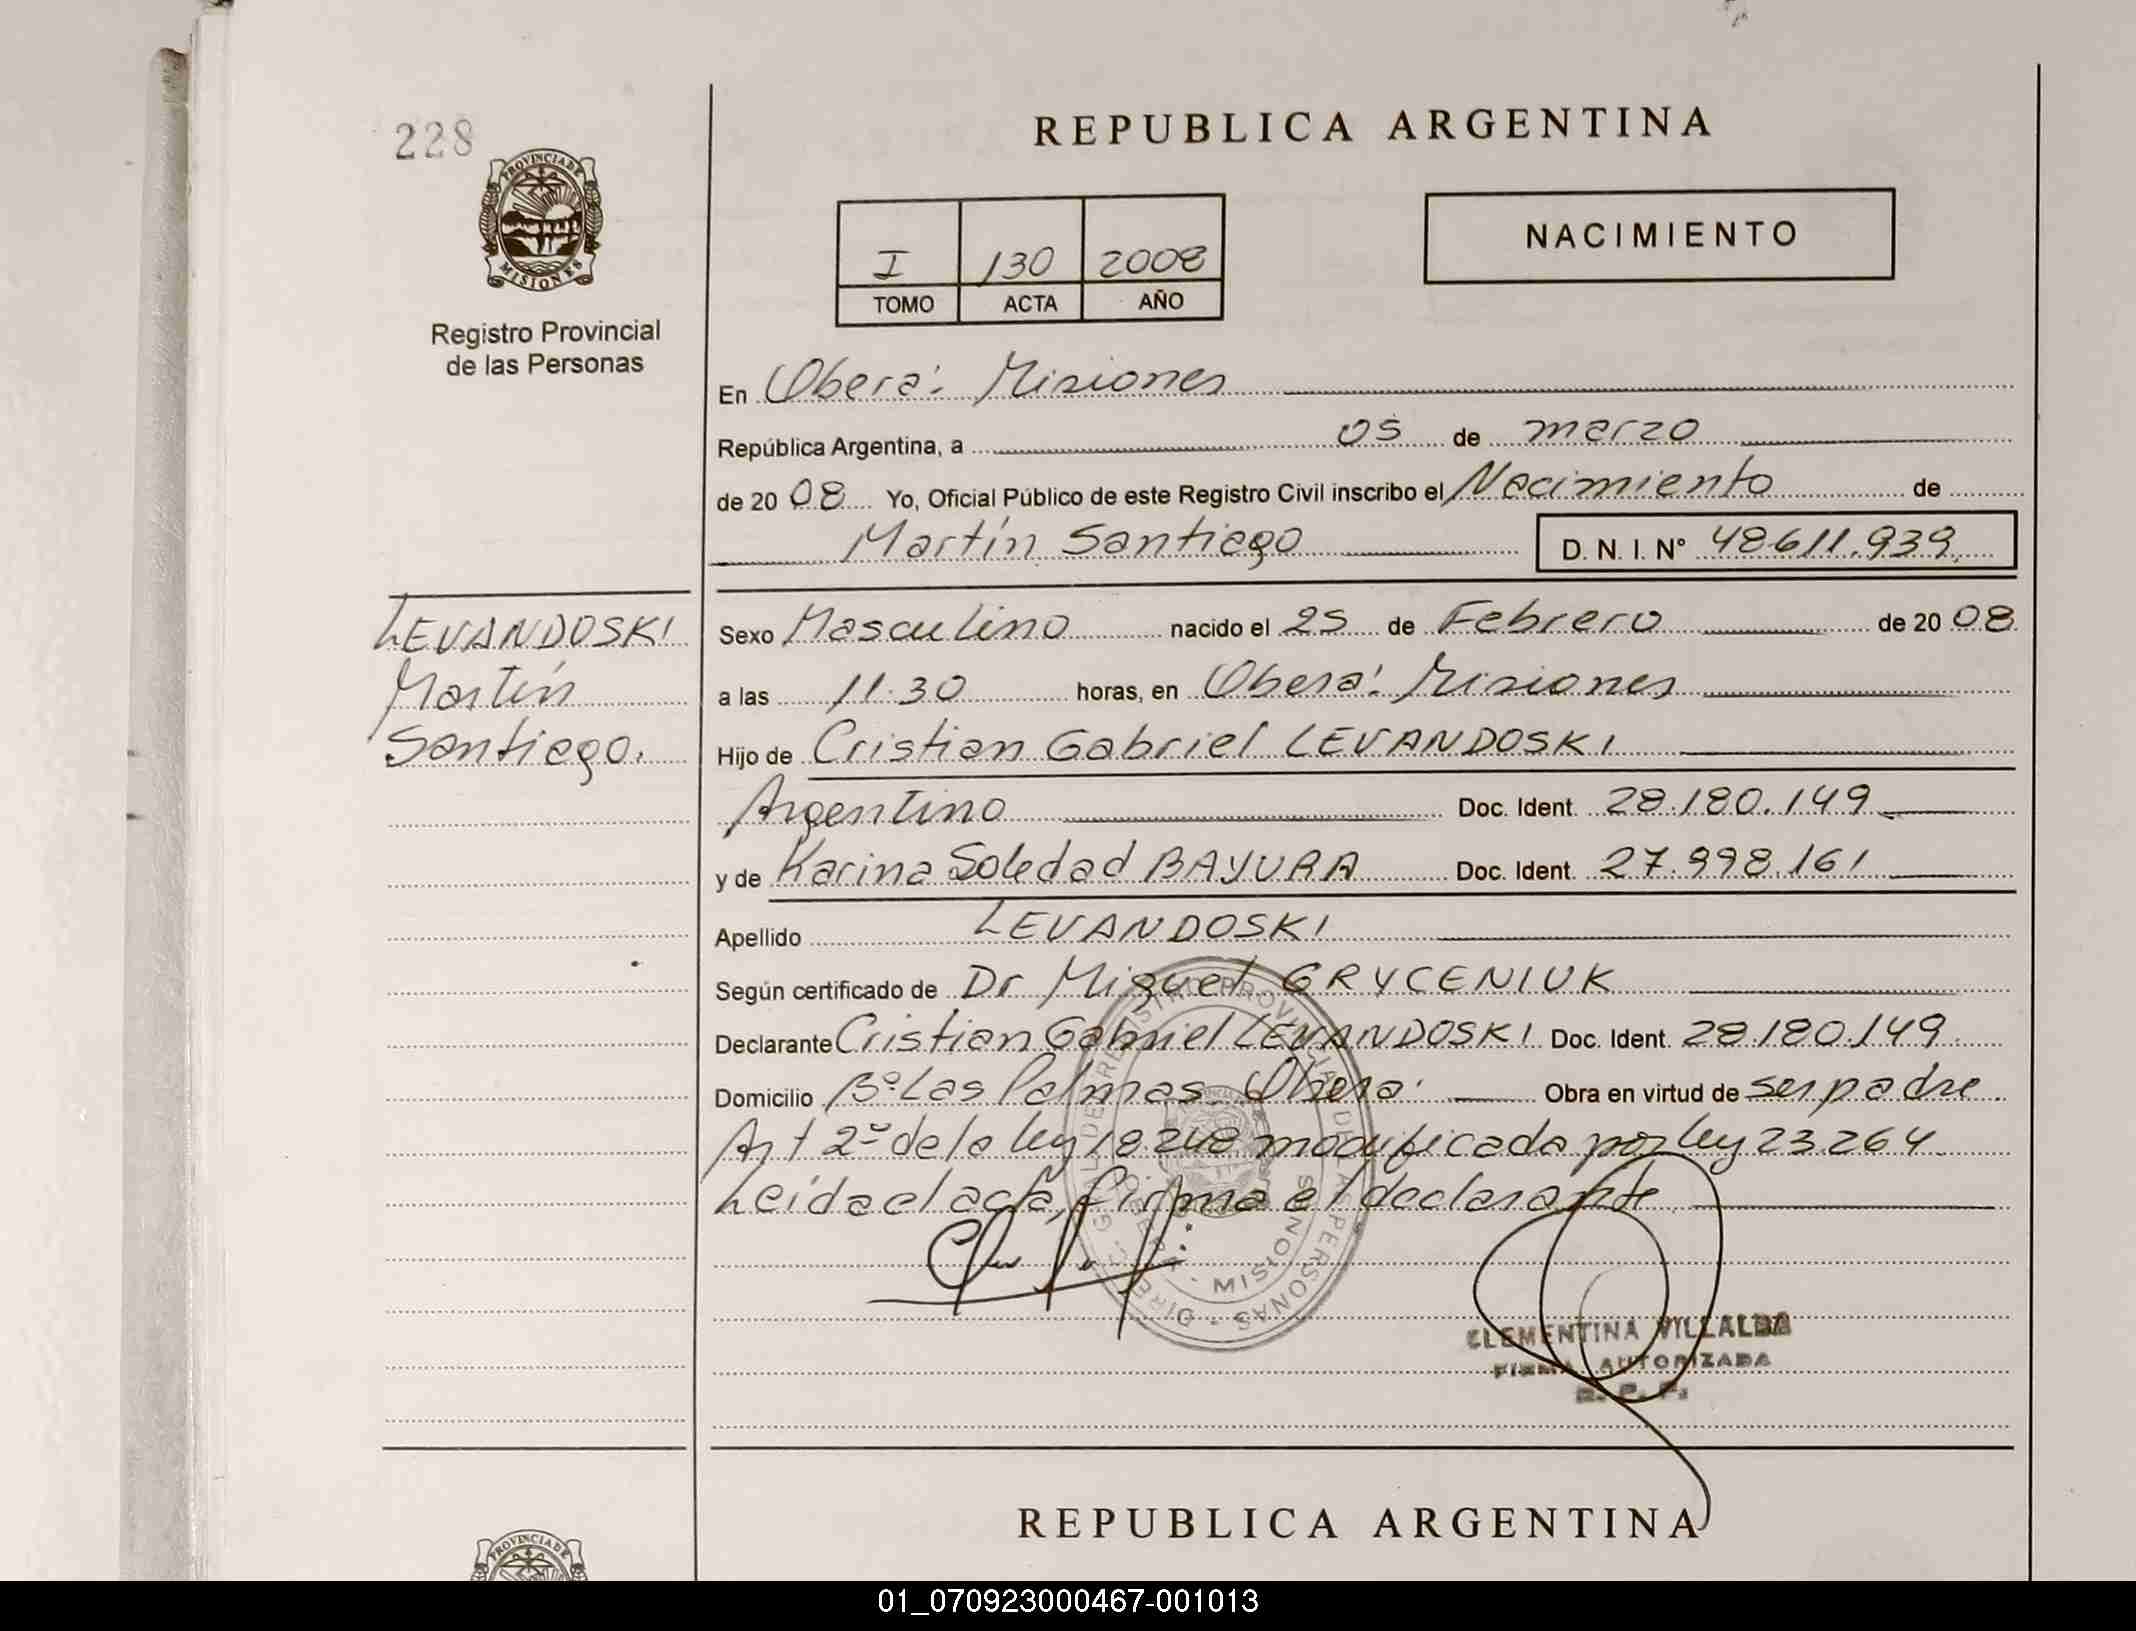 228
PROVINCIA DE
MISIONES
Registro Provincial
de las Personas
REPUBLICA ARGENTINA
I 130 2008
TOMO ACTA AÑO
NACIMIENTO
En Oberá: Misiones
República Argentina, a 05 de marzo
de 20 08 Yo, Oficial Público de este Registro Civil inscribo el Nacimiento de
Martín Santiago D. N. I. N° 48611.939
LEVANDOSKI
Martín
Santiago.
Sexo Masculino nacido el 25 de Febrero de 20 08
a las 11.30 horas, en Oberá: Misiones
Hijo de Cristian Gabriel LEVANDOSKI
Argentino Doc. Ident. 28.180.149
y de Karina Soledad BAYURA Doc. Ident. 27.998.161
Apellido LEVANDOSKI
Según certificado de Dr Miguel GRYCENIUK
Declarante Cristian Gabriel LEVANDOSKI Doc. Ident. 28.180.149
Domicilio Bº Las Palmas. Oberá. Obra en virtud de ser padre
Art 2º de la ley 18.248 modificada por ley 23.264
Leída el acta, firma el declarante
MISIONES
CLEMENTINA VILLALBA
FIRMA AUTORIZADA
R. P. P.
REPUBLICA ARGENTINA
PROVINCIA DE
01_070923000467-001013